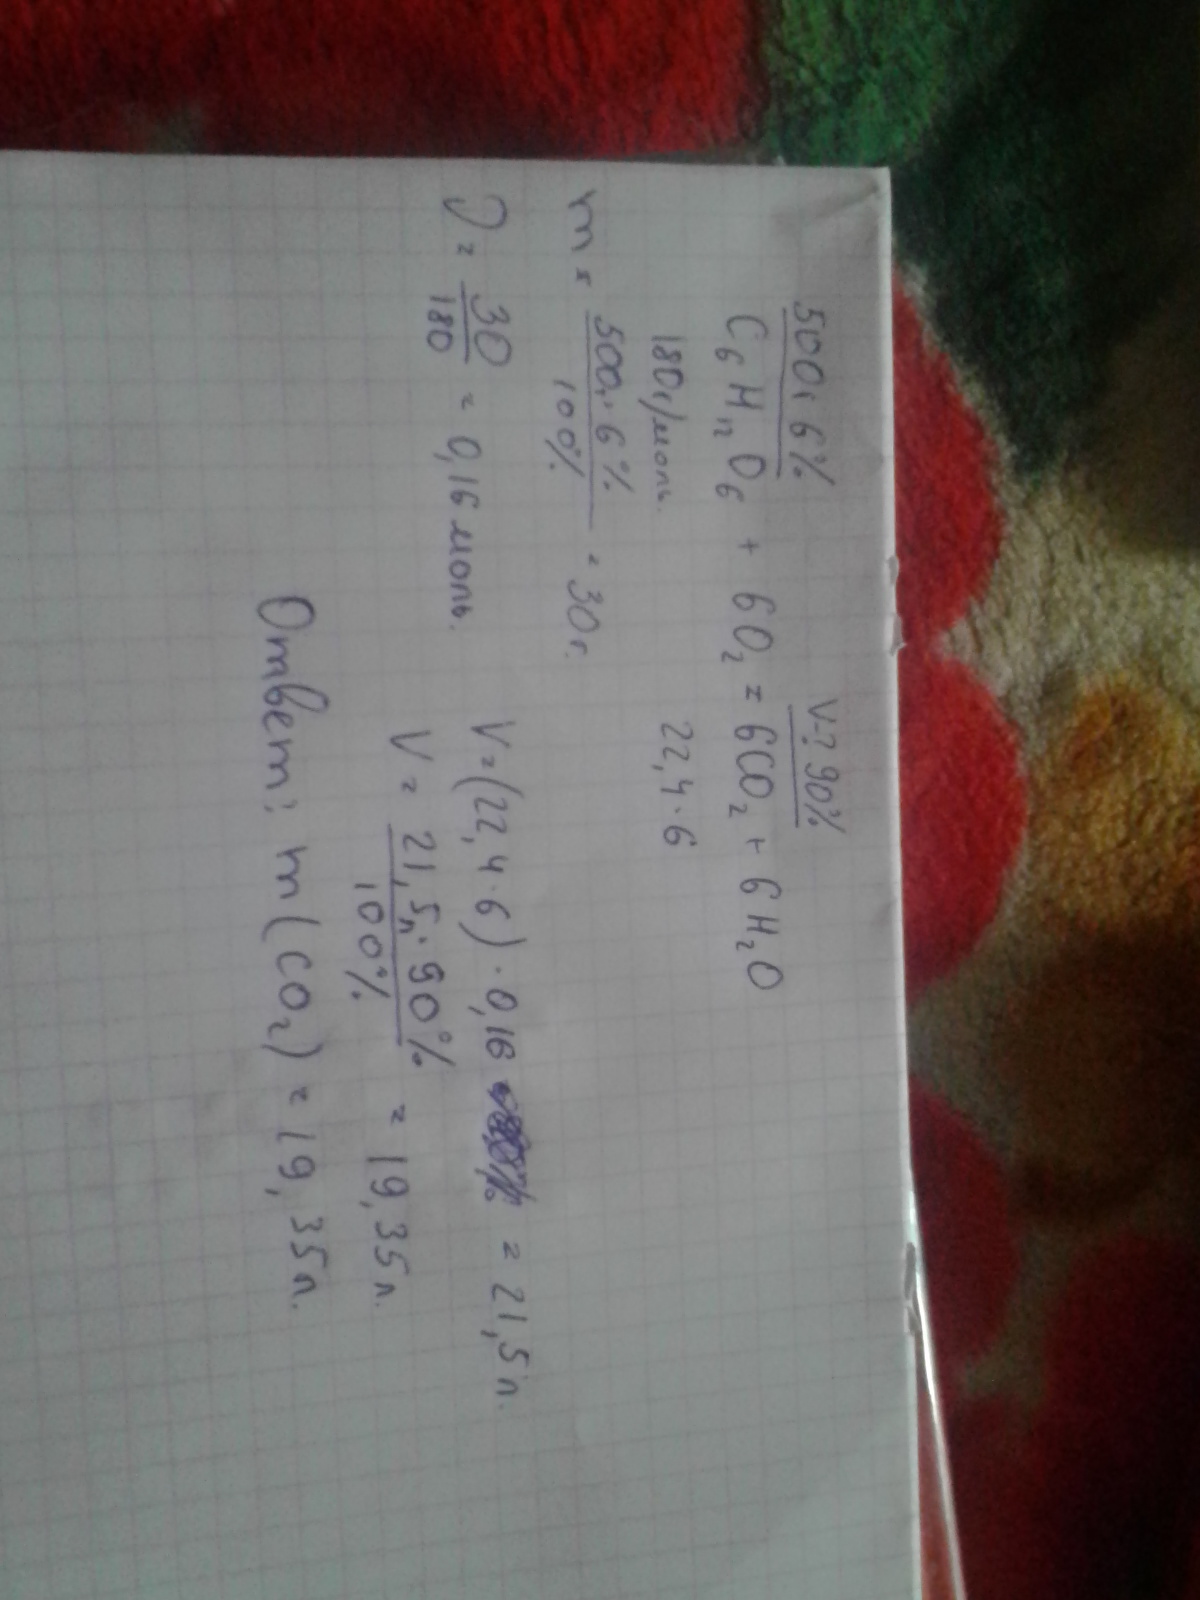 500г 6% V-? 90%
C₆H₁₂O₆ + 6O₂ = 6CO₂ + 6H₂O
180г/моль. 22,4·6
m = 500г·6% / 100% = 30г.
ν = 30 / 180 = 0,16 моль.
V=(22,4·6)·0,16 = 21,5л.
V = 21,5л·90% / 100% = 19,35л.
Ответ: m(CO₂) = 19,35л.